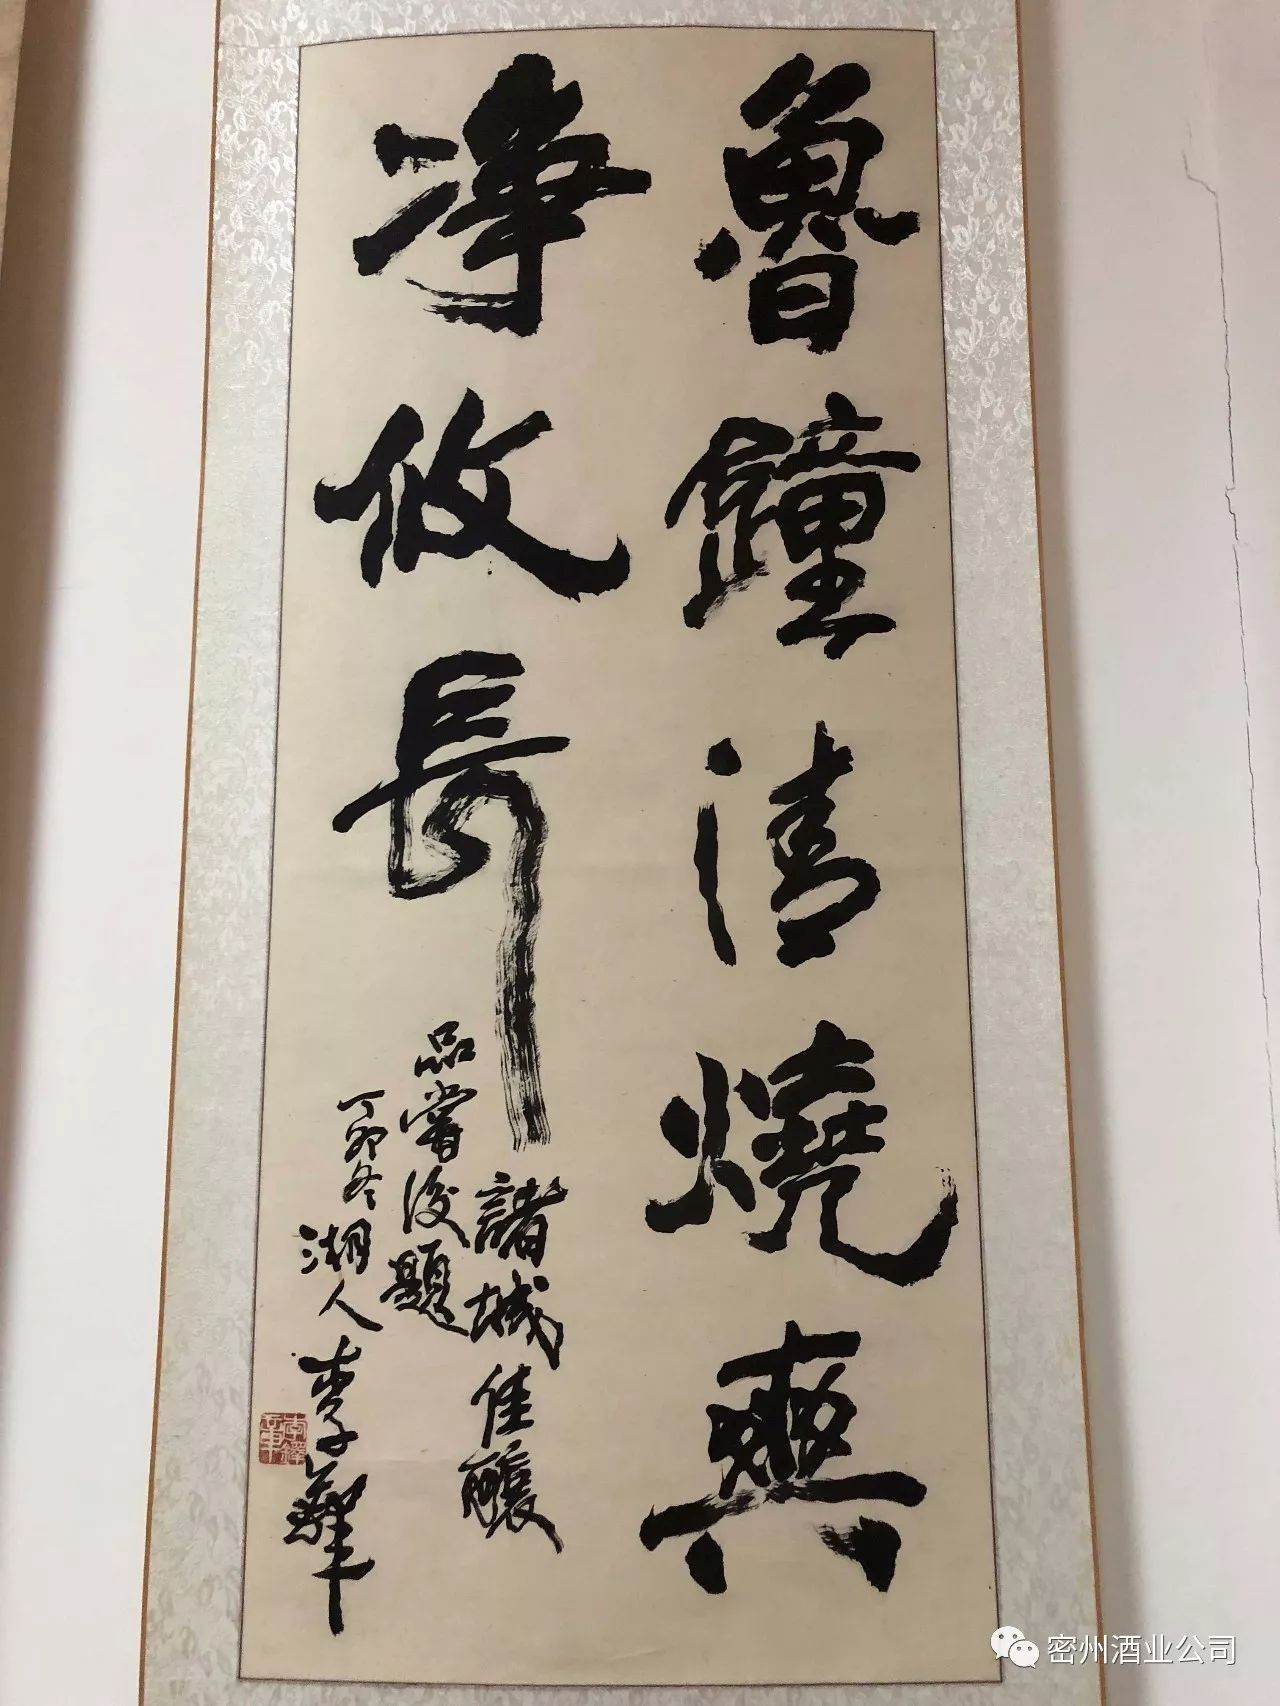 魯鐘清燒爽
净攸長
諸城佳釀
品嘗後題
丁卯冬湖人李鐸
密州酒业公司